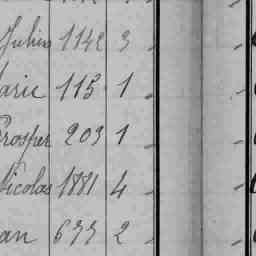 Julien 1142 3
arie 115 1
Prosper 203 1
Nicolas 1881 4
an 677 2